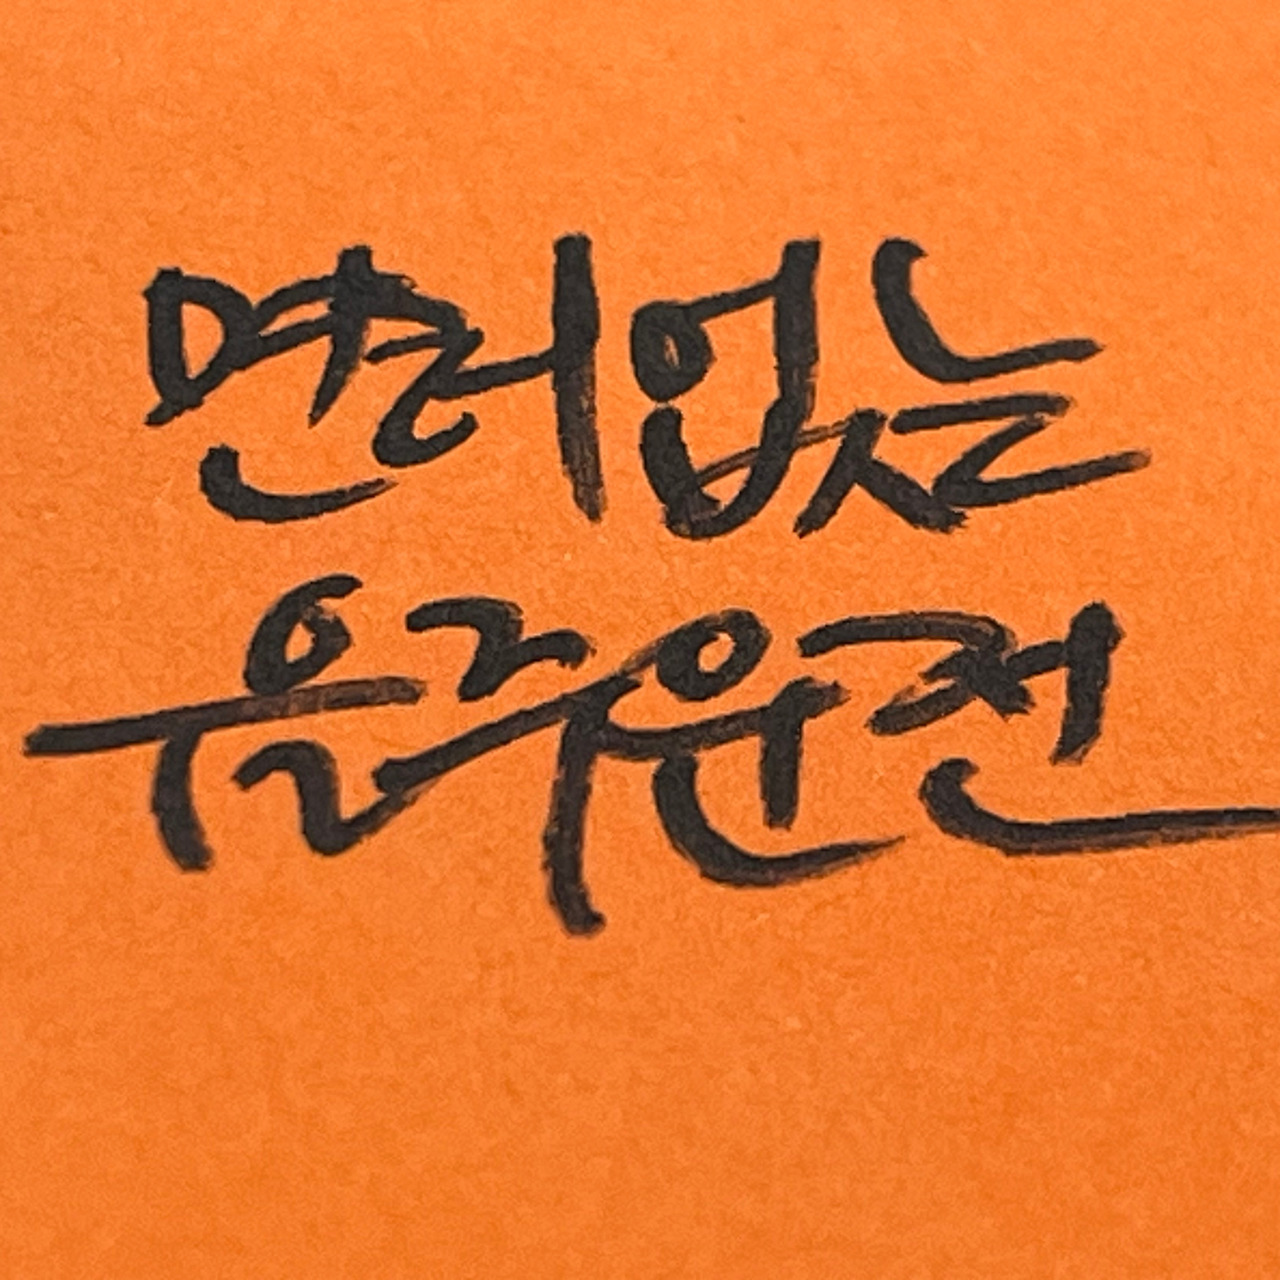 면허없는
음주운전